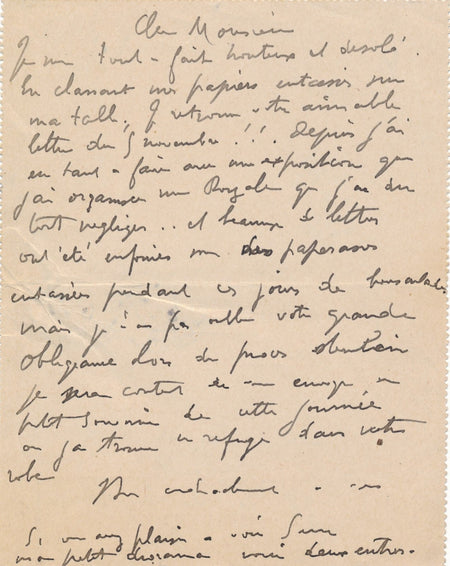 Cher Monsieur
Je suis tout à fait honteux et désolé.
En classant mes papiers entassés sur
ma table, je retrouve votre aimable
lettre du 5 novembre !!! depuis j'ai
eu tant à faire avec une exposition que
j'ai organisée rue Royale que j'ai dû
tout négliger .. et beaucoup de lettres
ont été enfouies sous des paperasses
entassées pendant ces jours de bousculades
mais je n'ai pas oublié votre grande
obligeance lors du
je serai content de envoyer un
petit souvenir de cette journée
où j'ai trouvé un refuge dans votre
Si vous avez plaisir à voir
mon petit diorama voici deux entrées.